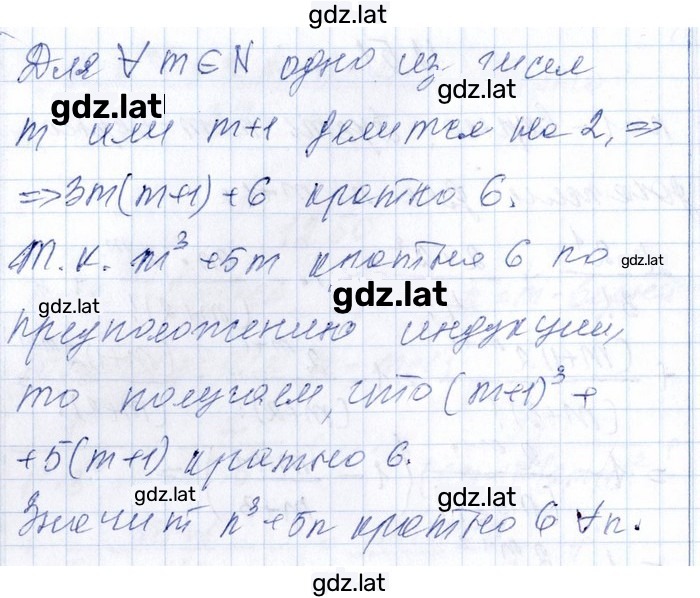 gdz.lat
Для ∀ m ∈ N одно из чисел
gdz.lat
gdz.lat
m или m+1 делится на 2, ⇒
⇒ 3m(m+1) + 6 кратно 6.
Т.к. m³ + 5m кратно 6 по
gdz.lat
gdz.lat
gdz.lat
предположению индукции,
то получаем, что (m+1)³ +
+ 5(m+1) кратно 6.
gdz.lat
gdz.lat
Значит n³ + 5n кратно 6 ∀n.
gdz.lat